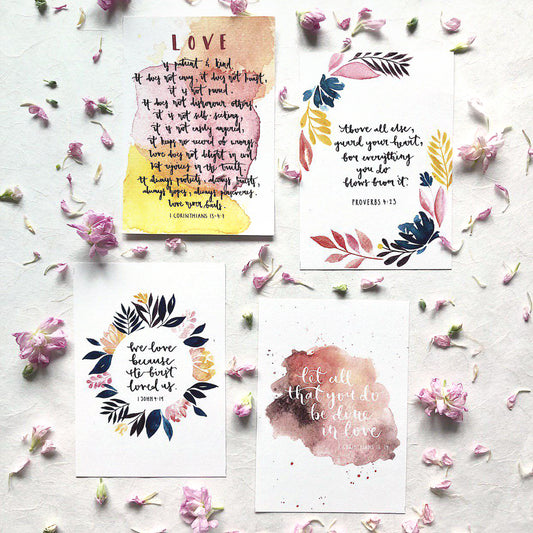 LOVE
is patient & kind.
It does not envy, it does not boast,
it is not proud.
It does not dishonour others,
it is not self-seeking,
it is not easily angered,
it keeps no record of wrongs.
Love does not delight in evil
but rejoices in the truth.
It always protects, always trusts,
always hopes, always perseveres.
Love never fails.
1 CORINTHIANS 13:4-8
Above all else,
guard your heart,
for everything
you do
flows from it.
PROVERBS 4:23
We love
because
He first
loved us.
1 JOHN 4:19
let all
that you do
be done
in love
1 CORINTHIANS